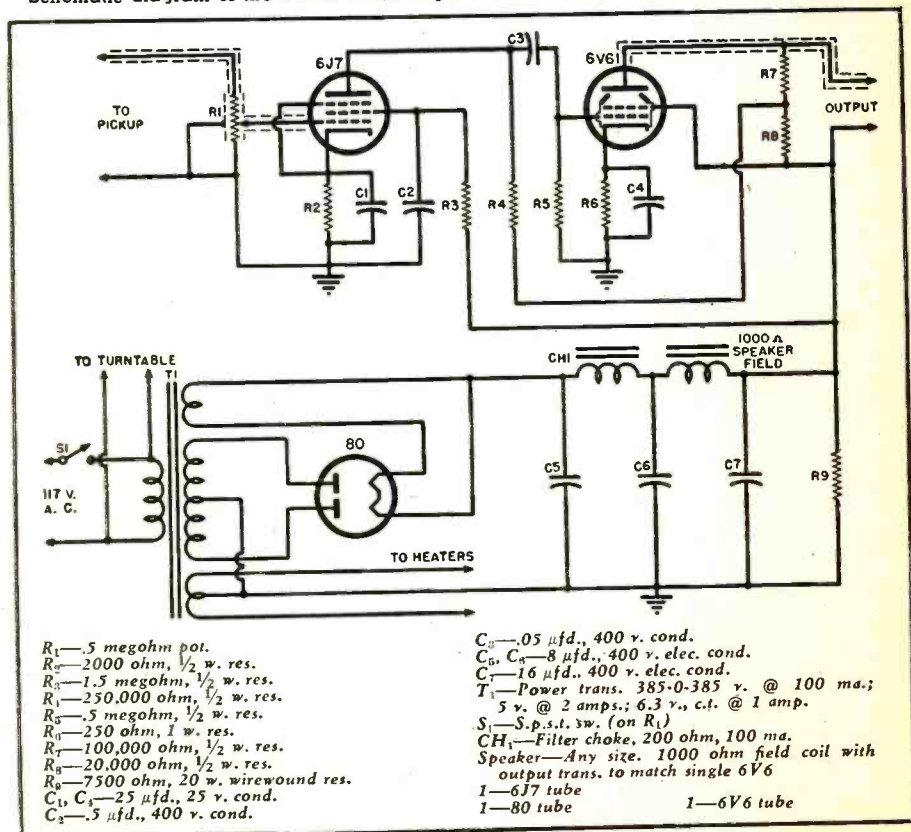 Schematic diagram of the
C3
6J7
6V6
R7
R1
TO
PICKUP
OUTPUT
R8
C1
C2
R2
R3
R4
R5
R6
C4
TO TURNTABLE
T1
CH1
1000 Ω
SPEAKER
FIELD
S1
80
117 V.
A. C.
C5
C6
C7
R9
TO HEATERS
R₁—.5 megohm pot.
R₂—2000 ohm, ½ w. res.
R₃—1.5 megohm, ½ w. res.
R₄—250,000 ohm, ½ w. res.
R₅—.5 megohm, ½ w. res.
R₆—250 ohm, 1 w. res.
R₇—100,000 ohm, ½ w. res.
R₈—20,000 ohm, ½ w. res.
R₉—7500 ohm, 20 w. wirewound res.
C₁, C₄—25 µfd., 25 v. cond.
C₂—.5 µfd., 400 v. cond.
C₃—.05 µfd., 400 v. cond.
C₅, C₆—8 µfd., 400 v. elec. cond.
C₇—16 µfd., 400 v. elec. cond.
T₁—Power trans. 385-0-385 v. @ 100 ma.;
5 v. @ 2 amps.; 6.3 v., c.t. @ 1 amp.
S₁—S.p.s.t. sw. (on R₁)
CH₁—Filter choke, 200 ohm, 100 ma.
Speaker—Any size. 1000 ohm field coil with
output trans. to match single 6V6
1—6J7 tube
1—80 tube 1—6V6 tube